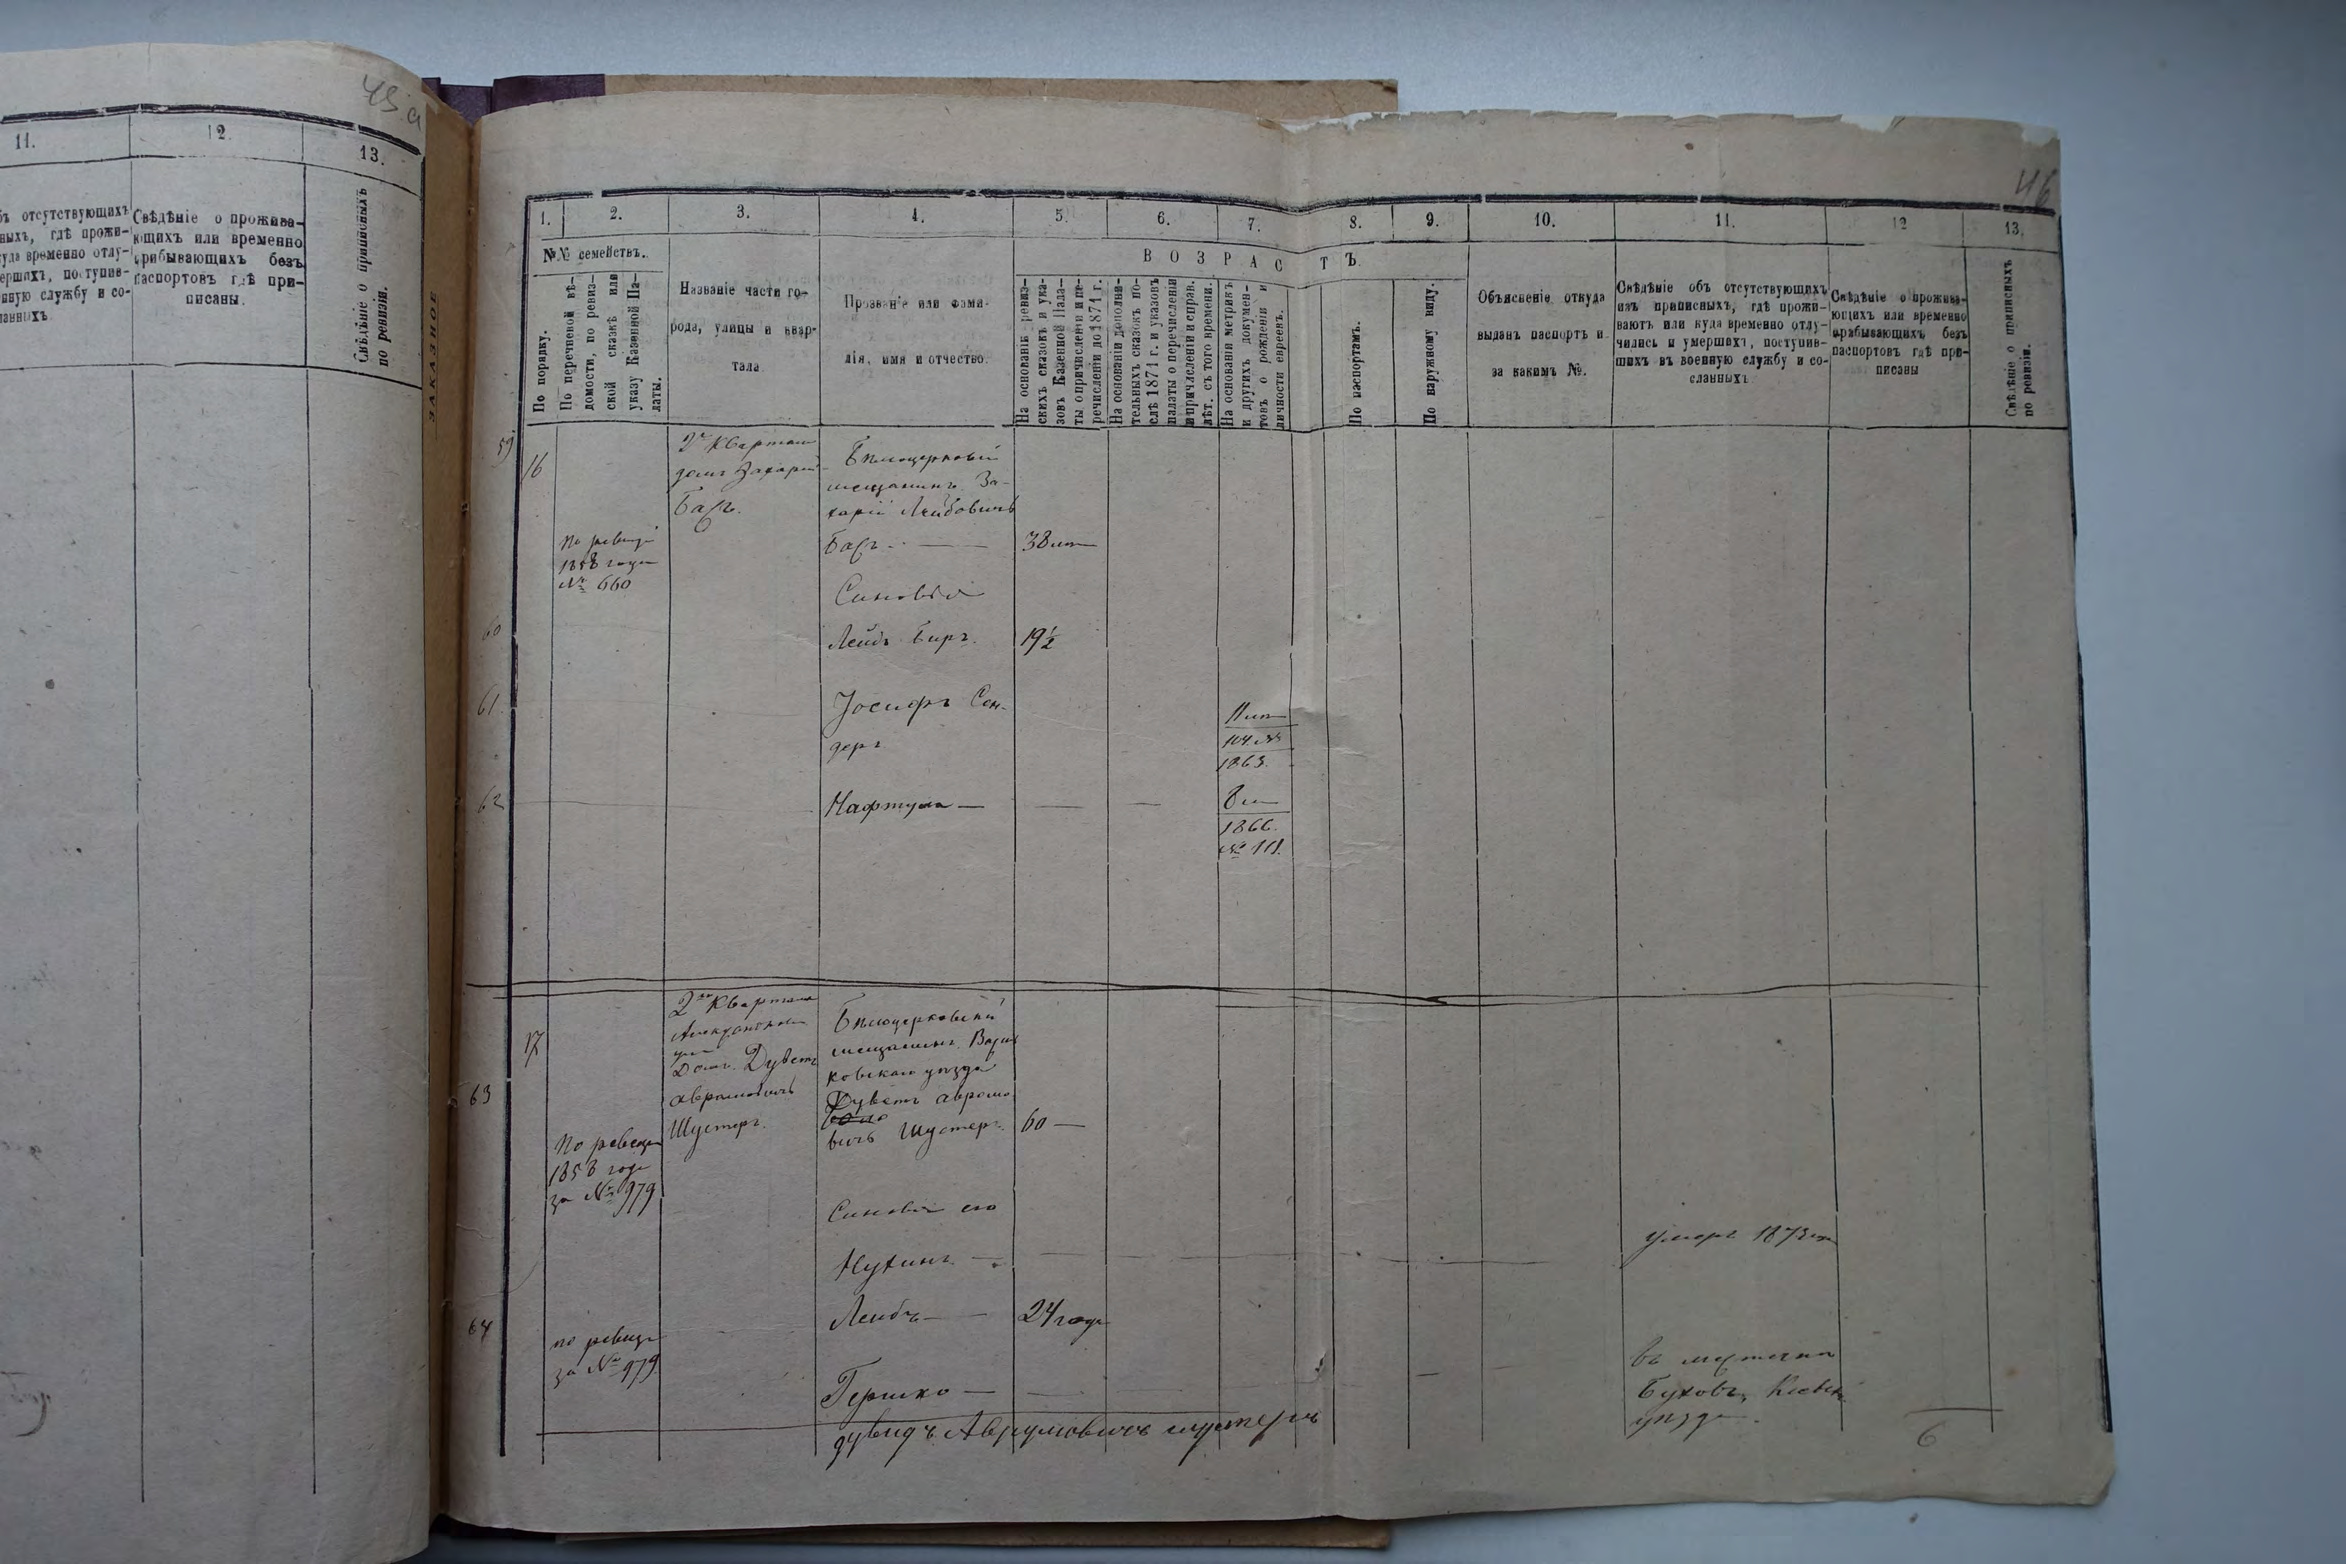 43 а
11.
12.
13.
бъ отсутствующихъ
ныхъ, гдѣ прожи-
куда временно отлу-
мершихъ, поступив-
енную службу и со-
ланныхъ
Свѣдѣніе о прожива-
ющихъ или временно
прибывающихъ безъ
паспортовъ гдѣ при-
писаны.
Свѣдѣніе о приписныхъ
по ревизіи.
ЗАКАЗНОЕ
46
1.
2.
3.
4.
5.
6.
7.
8.
9.
10.
11.
12
13.
№№ семействъ.
По порядку.
По перечневой вѣ-
домости, по ревиз-
ской сказкѣ или
указу Казенной Па-
латы.
Названіе части го-
рода, улицы и квар-
тала
Прозваніе или фами-
лія, имя и отчество.
ВОЗРАСТЪ.
На основаніи ревиз-
скихъ сказокъ и ука-
зовъ Казенной Пала-
ты о причисленіи и пе-
речисленіи до 1871 г.
На основаніи дополни-
тельныхъ сказокъ по-
слѣ 1871 г. и указовъ
палаты о перечисленіи
и причисленіи и справ.
лѣт. съ того времени.
На основаніи метрикъ
и другихъ докумен-
товъ о рожденіи и
личности евреевъ.
По паспортамъ.
По наружному виду.
Объясненіе откуда
выданъ паспортъ и
за какимъ №.
Свѣдѣніе объ отсутствующихъ
изъ приписныхъ, гдѣ прожи-
ваютъ или куда временно отлу-
чились и умершихъ, поступив-
шихъ въ военную службу и со-
сланныхъ
Свѣдѣніе о прожива-
ющихъ или временно
прибывающихъ безъ
паспортовъ гдѣ при-
писаны
Свѣдѣніе о приписныхъ
по ревизіи.
59
16
По ревизіи
1858 года
№ 660
2й Кварталъ
домъ Захарій
Басъ.
Бѣлоцерковскій
мещанинъ За-
харій Лейбовичъ
Басъ
38 лѣтъ
Синовья
60
Лейбъ Беръ.
19½
61
Іосифъ Сен-
деръ
11 лѣтъ
104 №
1863.
62
Нафтула
8 л
1866.
№ 111.
17
63
По ревизіи
1858 года
за № 979
2й Квартала
домъ. Дуветъ
Аврамовичъ
Шустеръ.
Бѣлоцерковскій
мещанинъ Василь
ковскаго уѣзда
Дуветъ Авромо
вичъ Шустеръ
60
Синовья его
Нухинъ
умеръ 1873 года
64
по ревизіи
за № 979
Лейбъ
24 года
Гершко
въ местечке
Буховъ, Кіевск.
уѣзда.
6
дувидъ Аврумовичъ шустеръ